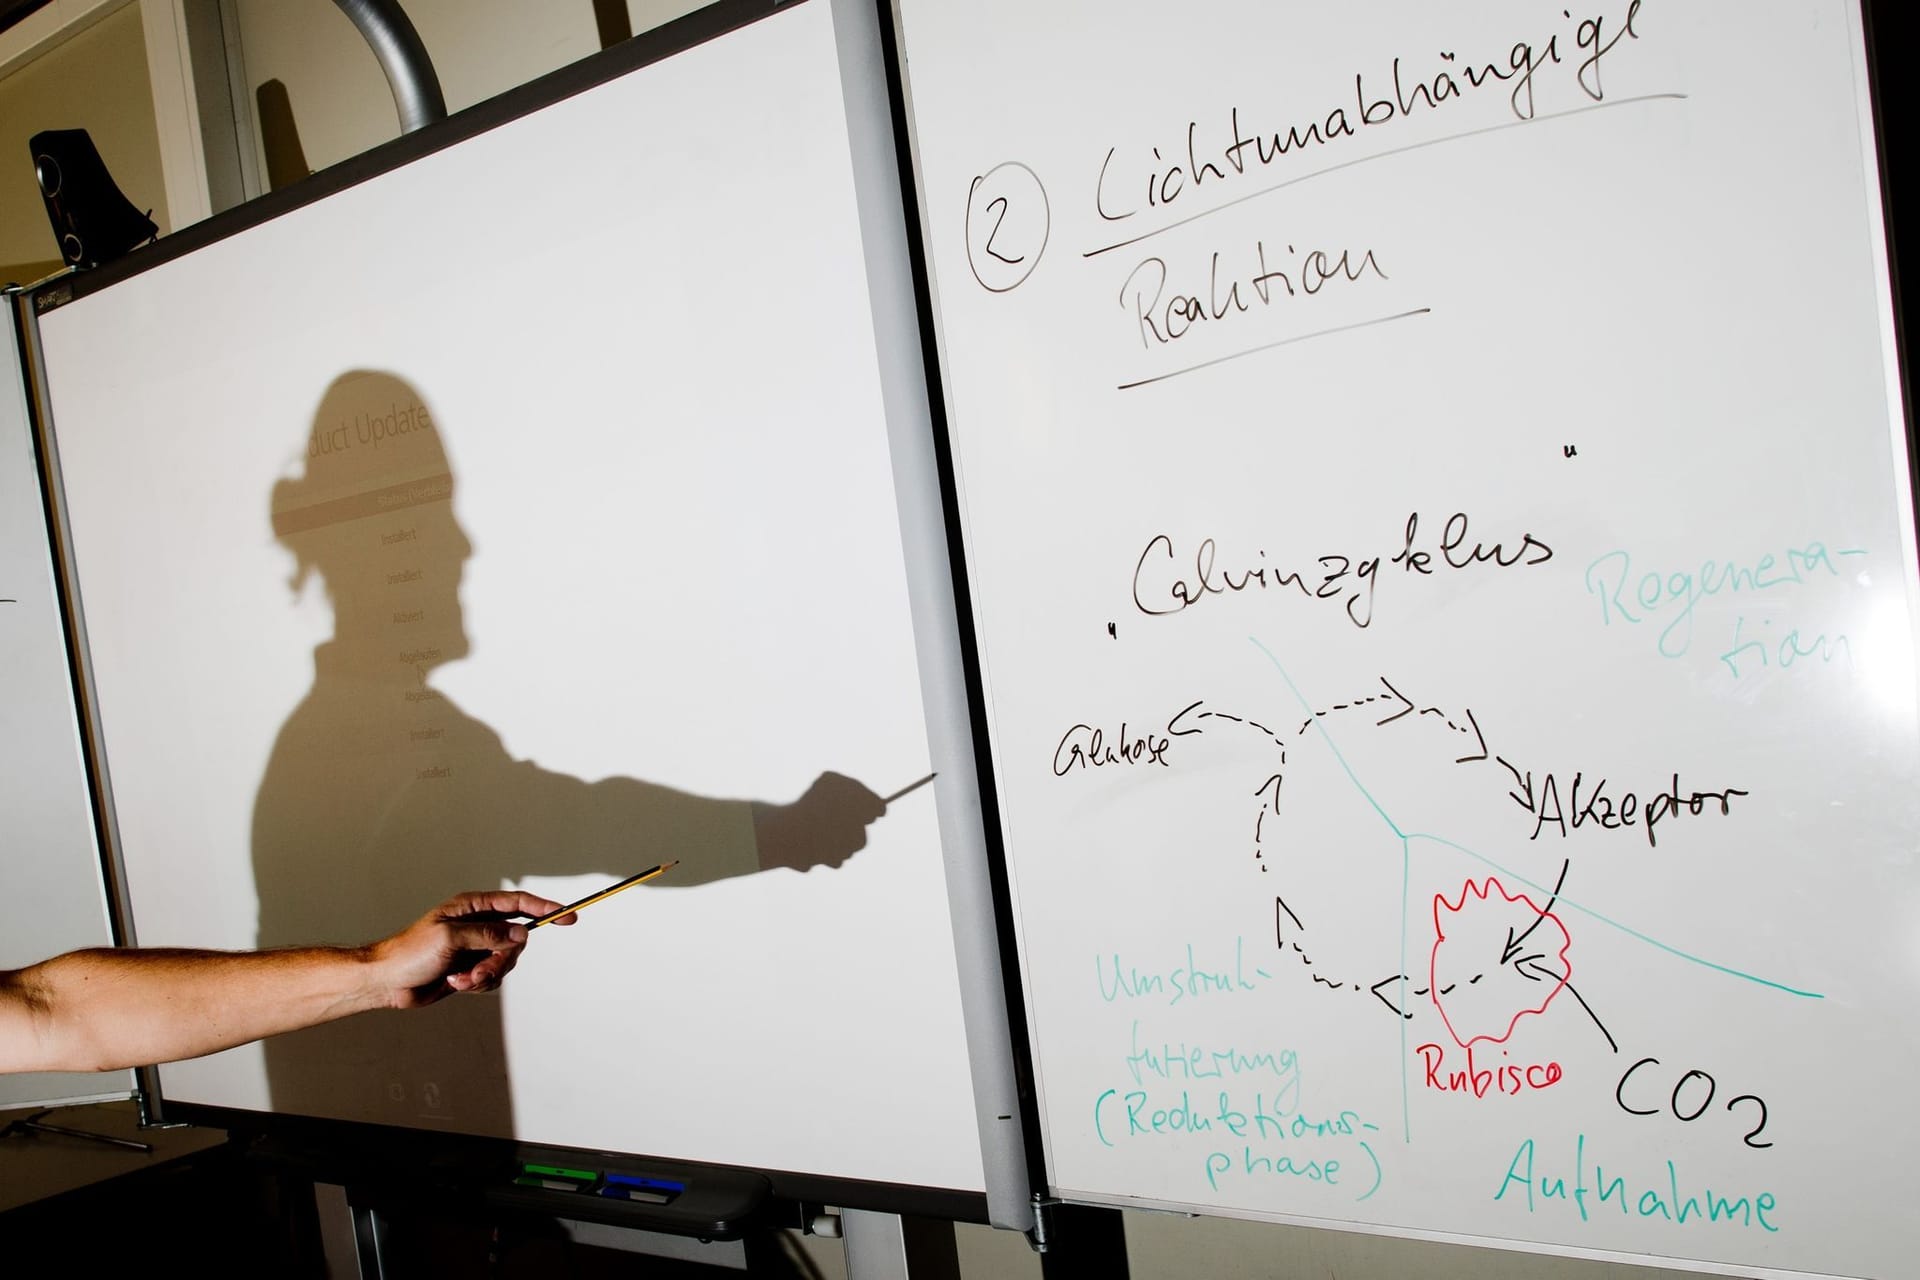 SMART
duct Update
Status (Verbleib
Installiert
Installiert
Aktiviert
Abgelaufen
Abgelau
Installiert
Installiert
② Lichtunabhängige
Reaktion
„Calvinzyklus"
Regenera-
tion
Glukose
Akzeptor
Umstruk-
turierung
(Reduktions-
phase)
Rubisco
CO2
Aufnahme